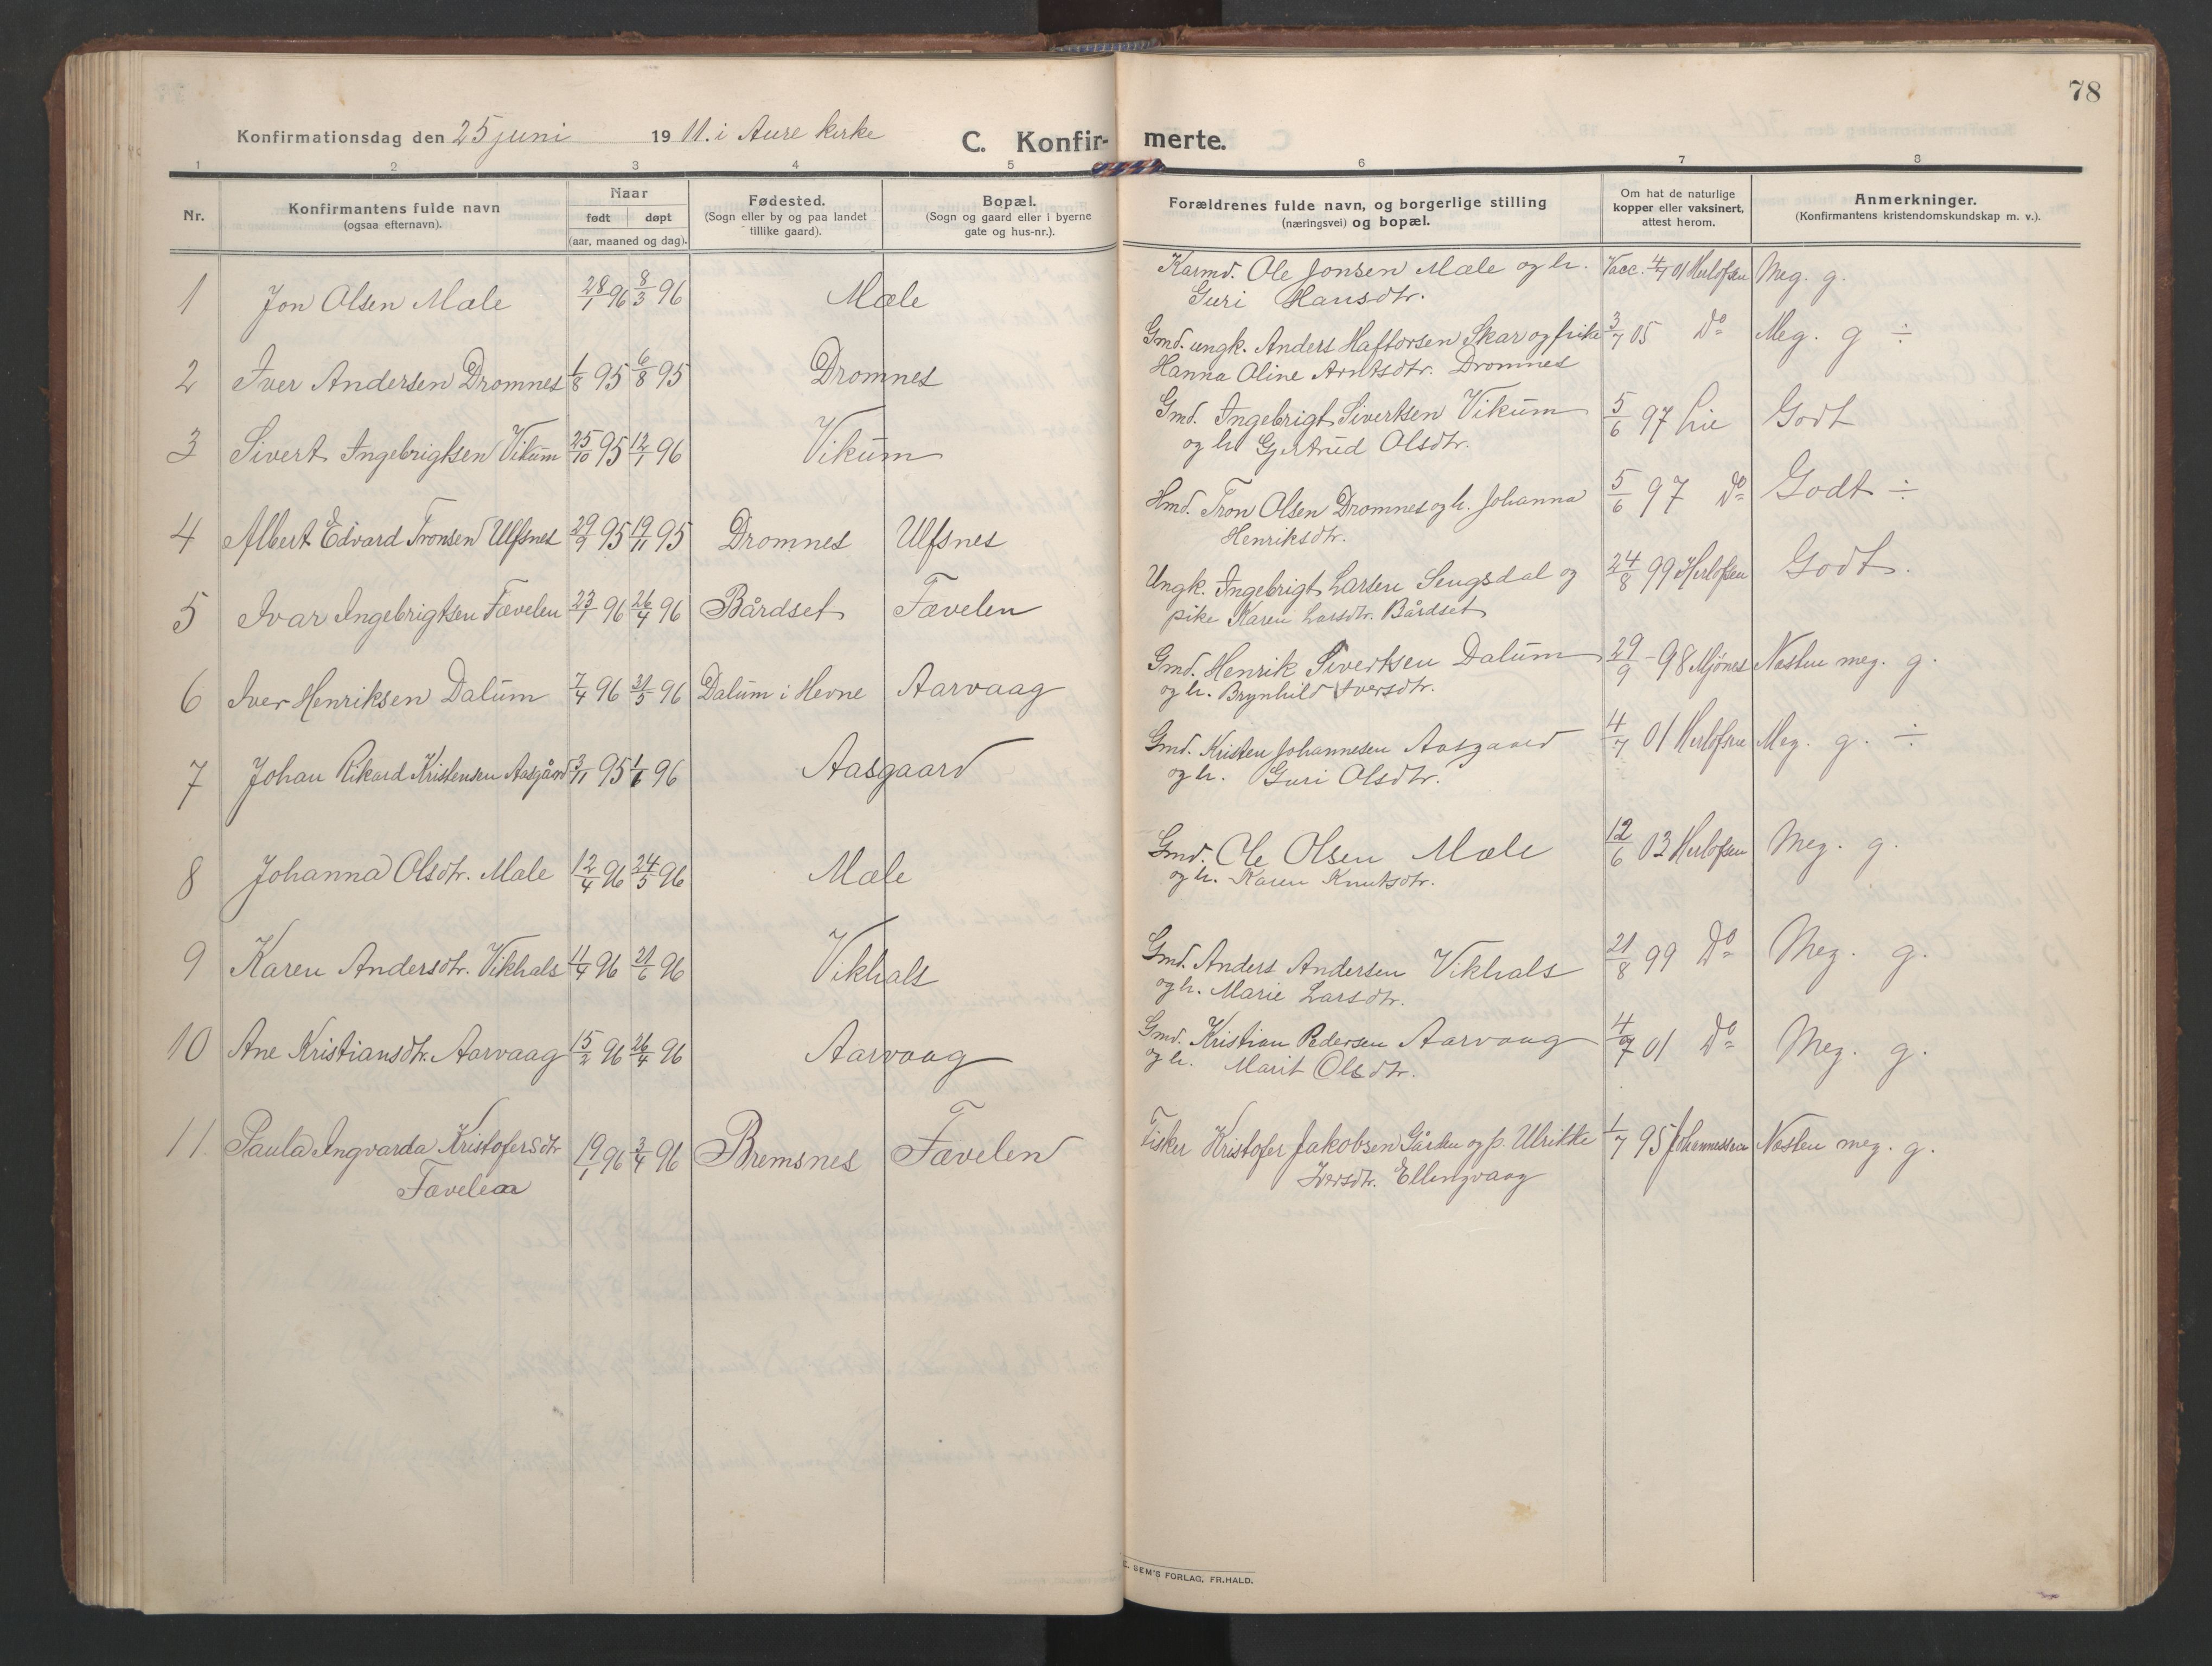 78
Konfirmationsdag den 25 juni 1911. i Aure kirke
C. Konfirmerte.
1 2 3 4 5 6 7 8
Nr.
Konfirmantens fulde navn
(ogsaa efternavn).
Naar
født døpt
(aar, maaned og dag).
Fødested.
(Sogn eller by og paa landet
tillike gaard).
Bopæl.
(Sogn og gaard eller i byerne
gate og hus-nr.).
Forældrenes fulde navn, og borgerlige stilling
(næringsvei) og bopæl.
Om hat de naturlige
kopper eller vaksinert,
attest herom.
Anmerkninger.
(Konfirmantens kristendomskundskap m. v.).
1 Jon Olsen Mæle 28/1 96 8/3 96 Mæle
Karmd. Ole Jonsen Mæle og h. Vacc. 4/7 01 Herlofsen Meg. g.
Guri Hansdtr.
2 Iver Andersen Dromnes 1/8 95 6/8 95 Dromnes
Gmd. ungk. Anders Haftorsen Skar og pike 3/7 05 Do Meg. g ÷
Hanna Oline Arntsdtr. Dromnes
3 Sivert Ingebrigtsen Vikum 25/10 95 12/1 96 Vikum
Gmd. Ingebrigt Sivertsen Vikum 5/6 97 Lie Godt
og h. Gjertrud Olsdtr.
4 Albert Edvard Tronsen Ulfsnes 29/9 95 19/11 95 Dromnes Ulfsnes
Hmd. Tron Olsen Dromnes og h. Johanna 5/6 97 Do Godt ÷
Henriksdtr.
5 Ivar Ingebrigtsen Fævelen 23/1 96 26/4 96 Bårdset Fævelen
Ungk. Ingebrigt Larsen Sengsdal og 24/8 99 Herlofsen Godt.
pike Karen Larsdtr. Bårdset
6 Iver Henriksen Dalum 7/4 96 31/5 96 Dalum i Hevne Aarvaag
Gmd. Henrik Sivertsen Dalum 29/9 - 98 Mjönes Næsten meg. g.
og h. Brynhild Iversdtr.
7 Johan Rikard Kristensen Aasgård 3/11 95 1/6 96 Aasgaard
Gmd. Kristen Johannesen Aasgaard 4/7 01 Herlofsen Meg. g. ÷
og h. Guri Olsdtr.
8 Johanna Olsdtr. Mæle 12/4 96 24/5 96 Mæle
Gmd. Ole Olsen Mæle 12/6 03 Herlofsen Meg. g.
og h. Karen Knutsdtr.
9 Karen Andersdtr. Vikhals 11/4 96 21/6 96 Vikhals
Gmd. Anders Andersen Vikhals 21/8 99 Do Meg. g.
og h. Marie Larsdtr.
10 Ane Kristiansdtr. Aarvaag 15/2 96 26/4 96 Aarvaag
Gmd. Kristian Pedersen Aarvaag 4/7 01 Do Meg. g.
og h. Marit Olsdtr.
11. Paula Ingvarda Kristofersdtr 19/1 96 3/4 96 Bremsnes Fævelen
Fævelen
Fisker Kristofer Jakobsen Gården og p. Ulrikke 1/7 95 Johannessen Næsten meg. g.
Iversdtr. Ellingvaag
SEM'S FORLAG, FR.HALD.